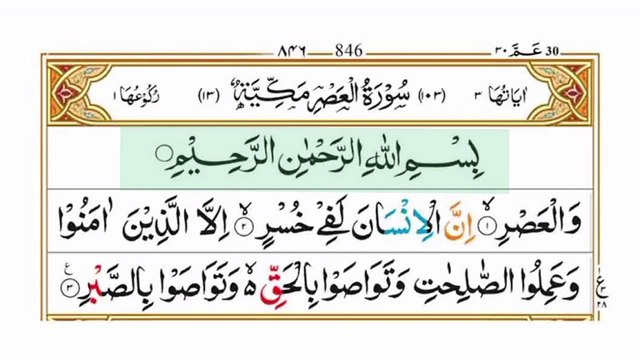 ٨٤٦ 846 عم ٣٠ 30
اٰيَاتُهَا ٣ (١٠٣) سُوْرَةُ الْعَصْرِ مَكِّيَّةٌ (١٣) رُكُوْعُهَا ١
بِسْمِ اللهِ الرَّحْمٰنِ الرَّحِيْمِ
وَالْعَصْرِ ۙ﴿١﴾ اِنَّ الْاِنْسَانَ لَفِيْ خُسْرٍ ۙ﴿٢﴾ اِلَّا الَّذِيْنَ اٰمَنُوْا
وَعَمِلُوا الصّٰلِحٰتِ وَتَوَاصَوْا بِالْحَقِّ ۙ وَتَوَاصَوْا بِالصَّبْرِ ﴿٣﴾ ع